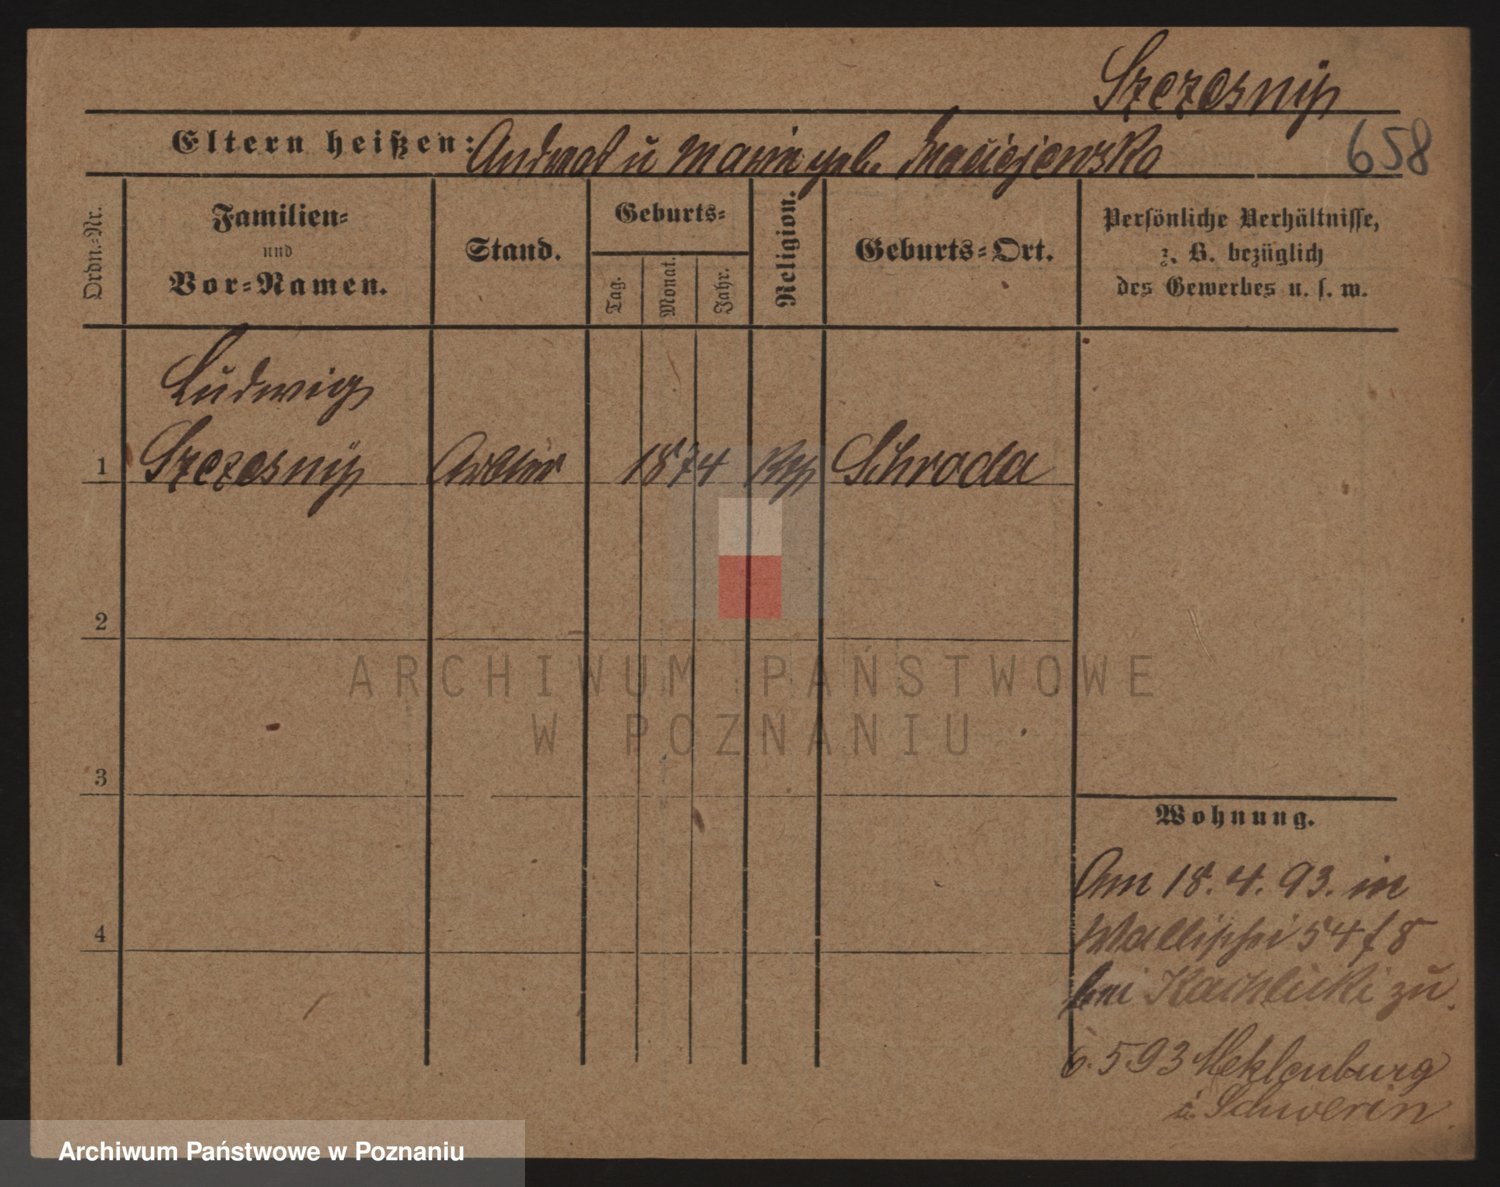 Szczesny
Eltern heißen: Andreas u Marie geb. Maciejewska
658
Ordn.-Nr.
Familien-
und
Vor-Namen.
Stand.
Geburts-
Tag.
Monat.
Jahr.
Religion.
Geburts-Ort.
Persönliche Verhältnisse,
z. B. bezüglich
des Gewerbes u. s. w.
Ludwig
1 Szczesny 1874 Schroda
2
3
4
Wohnung.
Am 18. 4. 93. in
Wallischei 54/8
bei zu
6. 5 93 Meklenburg
i. Schwerin
ARCHIWUM PAŃSTWOWE
W POZNANIU
Archiwum Państwowe w Poznaniu